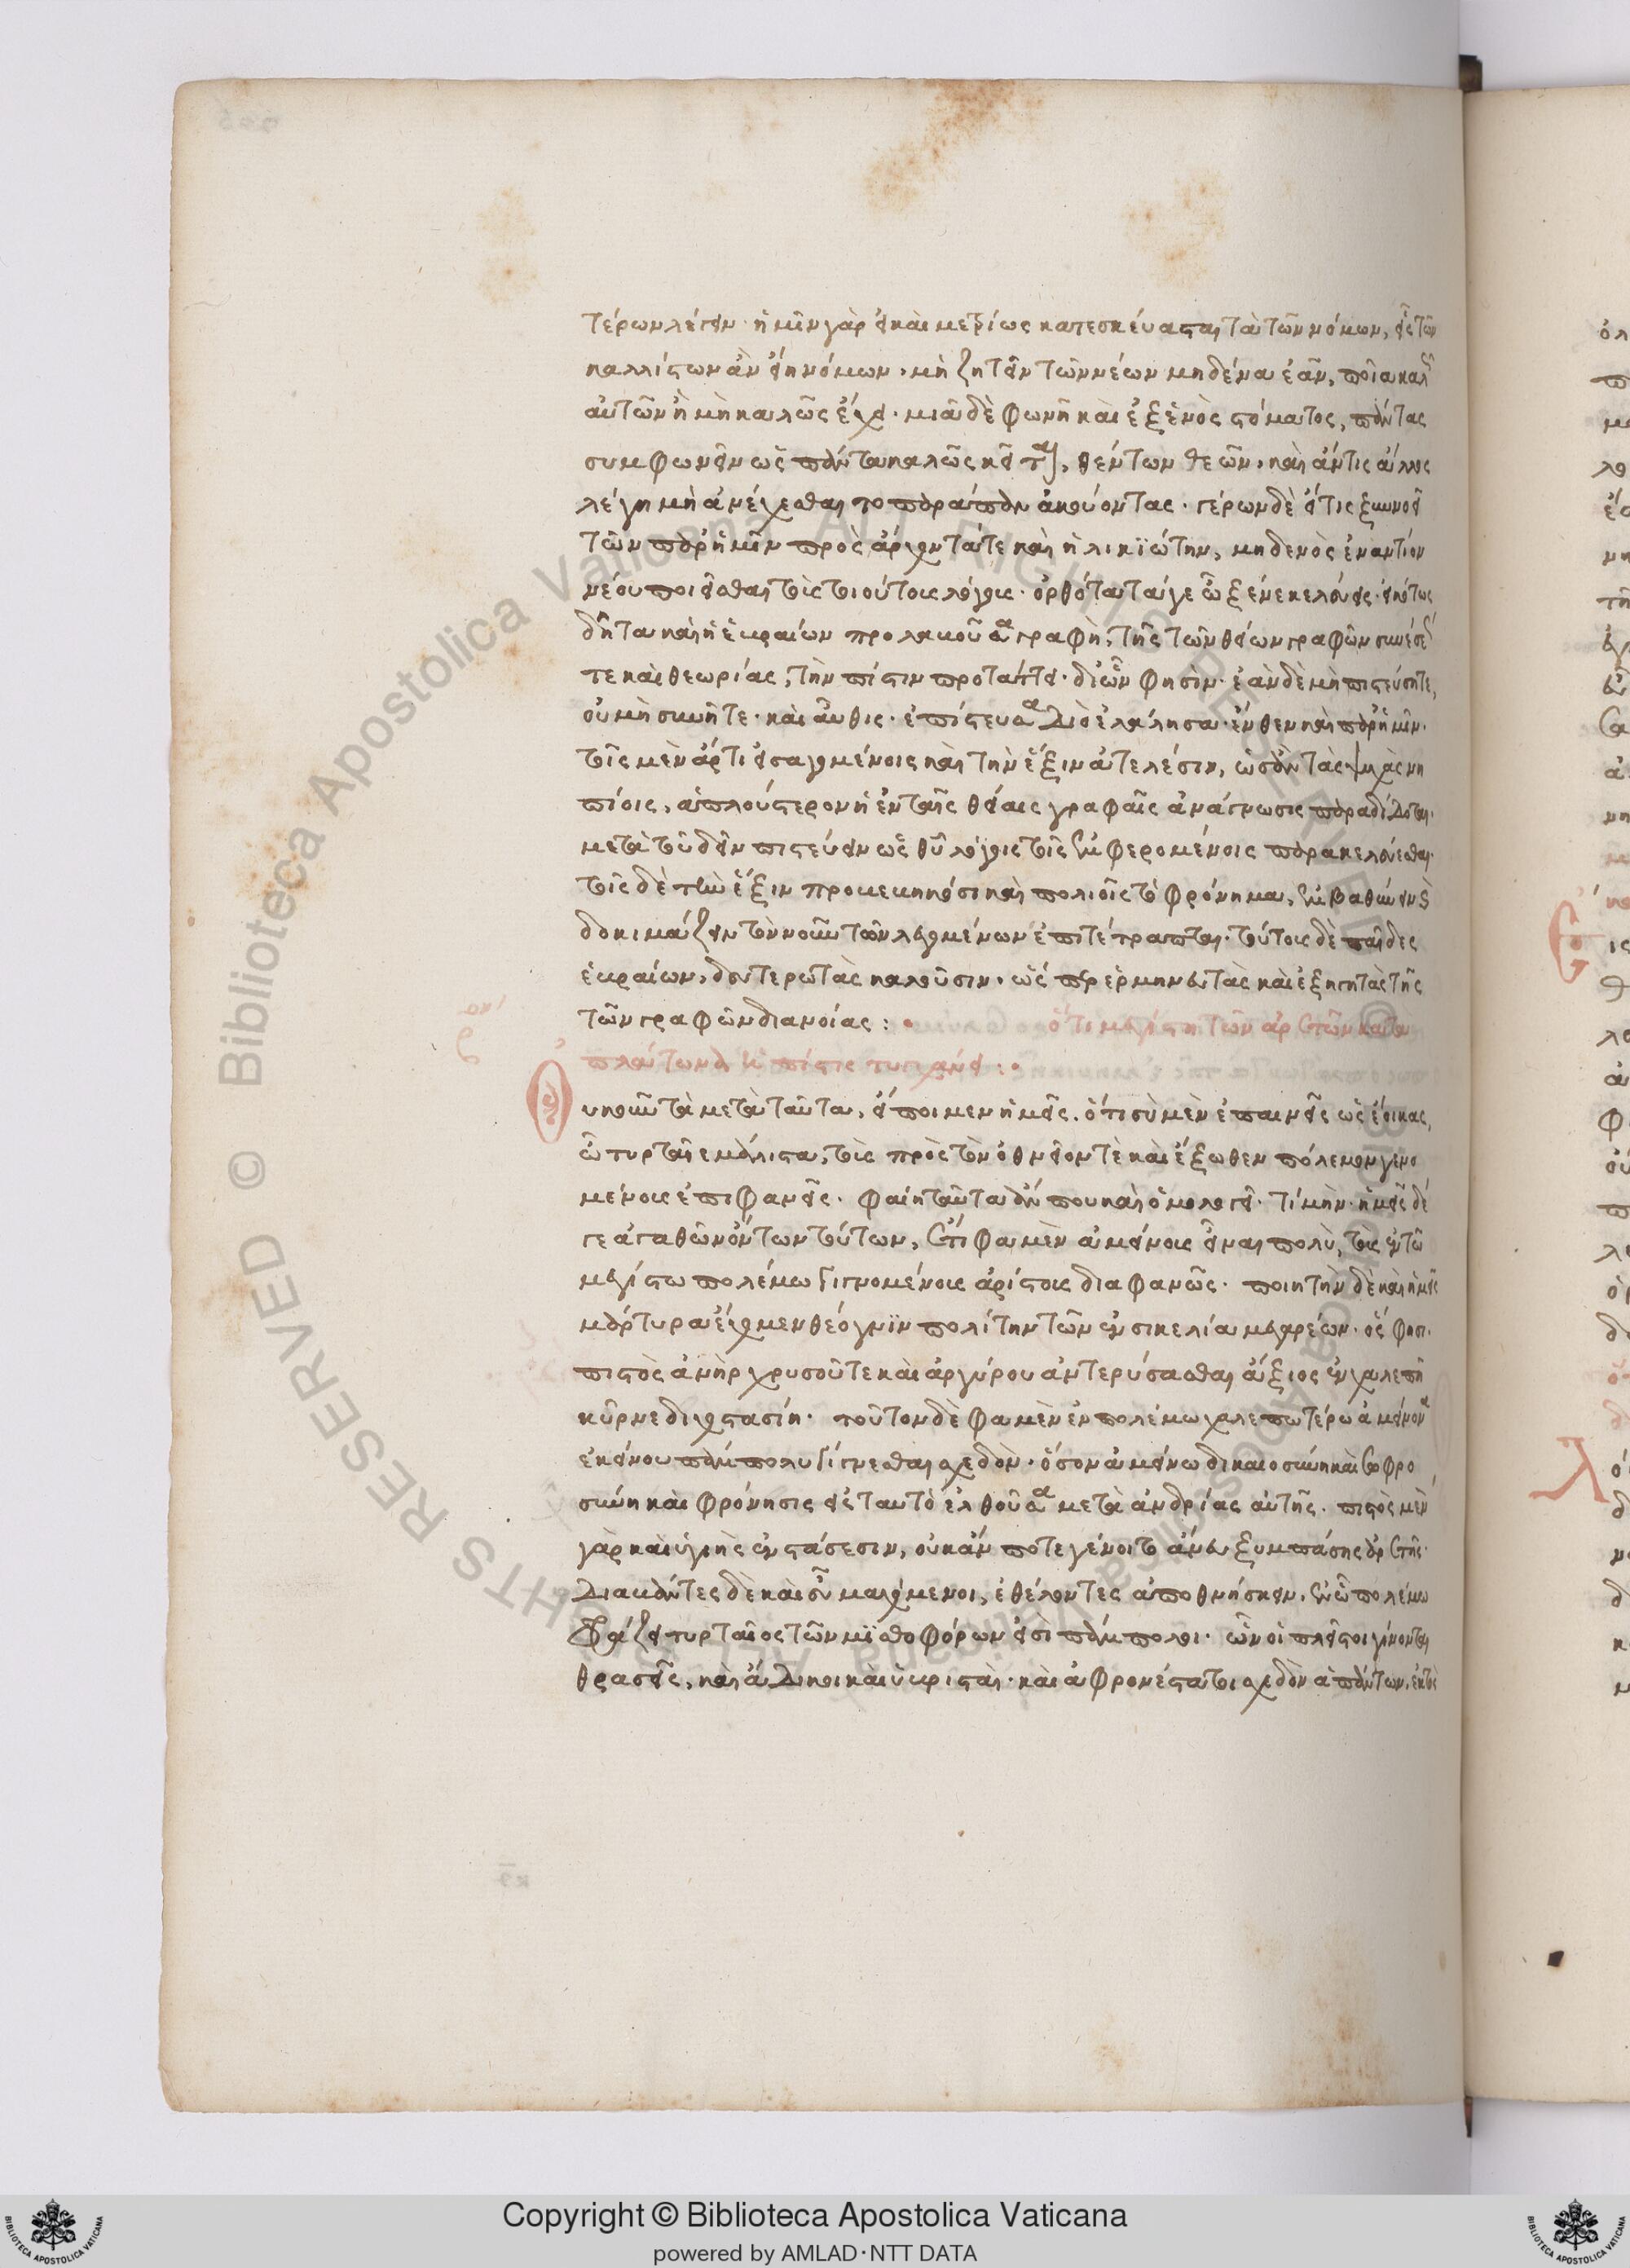 τέρων λέγειν· ἡμῖν γὰρ εἰ καὶ μετρίως κατεσκεύασται τὰ τῶν νόμων, εἷς τῶν
καλλίστων ἂν εἴη νόμων, μὴ ζητεῖν τῶν νέων μηδένα ἐᾶν, ποῖα καλῶς
αὐτῶν ἢ μὴ καλῶς ἔχει· μιᾷ δὲ φωνῇ καὶ ἐξ ἑνὸς στόματος, πάντας
συμφωνεῖν ὡς πάντα καλῶς κεῖται, θέντων θεῶν, καὶ ἄν τις ἄλλως
λέγῃ μὴ ἀνέχεσθαι τὸ παράπαν ἀκούοντας. γέρων δὲ εἴ τις ξυννοεῖ
τῶν παρ' ἡμῖν πρὸς ἄρχοντά τε καὶ ἡλικιώτην, μηδενὸς ἐναντίον
νέου ποιεῖσθαι τοὺς τοιούτους λόγους. ὀρθότατά γε ὦ ξένε κελεύεις· εἰκότως
δῆτα καὶ ἡ ἑβραίων προλαβοῦσα γραφὴ, τῆς τῶν θείων γραφῶν συνέσεώς
τε καὶ θεωρίας, τὴν πίστιν προτάττει· δι' ὧν φησίν· ἐὰν δὲ μὴ πιστεύσητε,
οὐ μὴ συνῆτε· καὶ αὖθις· ἐπίστευσα διὸ ἐλάλησα· ἔνθεν καὶ παρ' ἡμῖν·
τοῖς μὲν ἄρτι εἰσαγομένοις καὶ τὴν ἕξιν ἀτελέσιν, ὡσὰν τὰς ψυχὰς νη
πίοις, ἁπλούστερον ἡ ἐν ταῖς θείαις γραφαῖς ἀνάγνωσις παραδίδοται·
μετὰ τοῦ δεῖν πιστεύειν ὡς θεοῦ λόγοις τοῖς ἐμφερομένοις παρακελεύεσθαι·
τοῖς δὲ τὴν ἕξιν προβεβηκόσι καὶ πολιοῖς τὸ φρόνημα, ἐμβαθύνειν καὶ
δοκιμάζειν τὸν νοῦν τῶν λεγομένων ἐπιτέτραπται. τούτους δὲ παῖδες
ἑβραίων, δευτερωτὰς καλοῦσιν. ὥσπερ ἑρμηνευτὰς καὶ ἐξηγητὰς τῆς
τῶν γραφῶν διανοίας: ὅτι μεγίστη τῶν ἀρετῶν κατὰ
πλάτωνα ἡ πίστις τυγχάνει:
Οὐκοῦν τὰ μετὰ ταῦτα, εἴποιμεν ἡμεῖς. ὅτι σὺ μὲν ἐπαινεῖς ὡς ἔοικας,
ὦ τυρταῖε μάλιστα, τοὺς πρὸς τὸν ὀθνεῖόν τε καὶ ἔξωθεν πόλεμον γενο
μένους ἐπιφανεῖς. φαίη ταῦτα ἄν που καὶ ὁμολογεῖ. τί μήν. ἡμεῖς δέ
γε ἀγαθῶν ὄντων τούτων, ἔτι φαμὲν ἀμείνους εἶναι πολὺ, τοὺς ἐν τῷ
μεγίστῳ πολέμῳ γιγνομένους ἀρίστους διαφανῶς. ποιητὴν δὲ καὶ ἡμεῖς
μάρτυρα ἔχομεν θέογνιν πολίτην τῶν ἐν σικελίᾳ μεγαρέων. ὅς φησι·
πιστὸς ἀνὴρ χρυσοῦ τε καὶ ἀργύρου ἀντερύσασθαι ἄξιος ἐν χαλεπῇ
κύρνε διχοστασίῃ. τοῦτον δὲ φαμὲν ἐν πολέμῳ χαλεπωτέρῳ ἀμείνονα
ἐκείνου πάμπολυ γίγνεσθαι σχεδὸν. ὅσον ἀμείνω δικαιοσύνη καὶ σωφρο
σύνη καὶ φρόνησις εἰς ταυτὸ ἐλθοῦσα μετὰ ἀνδρίας αὐτῆς. πιστὸς μὲν
γὰρ καὶ ὑγιὴς ἐν στάσεσιν, οὐκ ἄν ποτε γένοιτο ἄνευ ξυμπάσης ἀρετῆς.
διαβάντες δὲ καὶ εὖ μαχόμενοι, ἐθέλοντες ἀποθνήσκειν, ἐν ᾧ πολέμῳ
φράζει τυρταῖος τῶν μισθοφόρων εἰσὶ πάμπολοι. ὧν οἱ πλεῖστοι γίνονται
θρασεῖς, καὶ ἄδικοι καὶ ὑβρισταὶ. καὶ ἀφρονέστατοι σχεδὸν ἁπάντων, ἐκτὸς
© Biblioteca Apostolica Vaticana ALL RIGHTS RESERVED
Copyright © Biblioteca Apostolica Vaticana
powered by AMLAD·NTT DATA